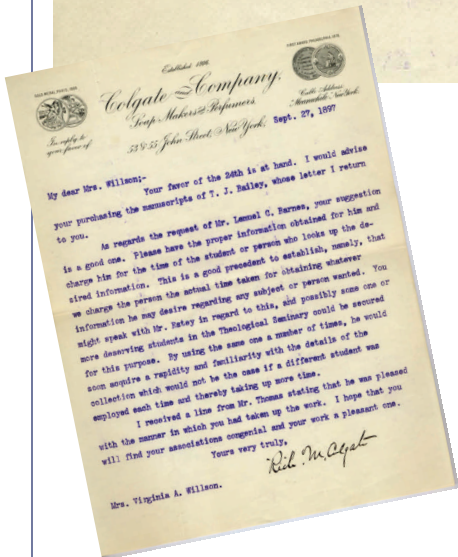 Established 1806.
FIRST AWARD, PHILADELPHIA, 1876.
Colgate & Company,
Soap Makers & Perfumers,
Cable Address
In reply to
your favor of
53 & 55 John Street, New York,
Sept. 27, 1897
My dear Mrs. Willson;-
Your favor of the 24th is at hand. I would advise
your purchasing the manuscripts of T. J. Bailey, whose letter I return
to you.
As regards the request of Mr. Lemuel C. Barnes, your suggestion
is a good one. Please have the proper information obtained for him and
charge him for the time of the student or person who looks up the de-
sired information. This is a good precedent to establish, namely, that
we charge the person the actual time taken for obtaining whatever
information he may desire regarding any subject or person wanted. You
might speak with Mr. Estey in regard to this, and possibly some one or
more deserving students in the Theological Seminary could be secured
for this purpose. By using the same one a number of times, he would
soon acquire a rapidity and familiarity with the details of the
collection which would not be the case if a different student was
employed each time and thereby taking up more time.
I received a line from Mr. Thomas stating that he was pleased
with the manner in which you had taken up the work. I hope that you
will find your associations congenial and your work a pleasant one.
Yours very truly,
Richd. M. Colgate
Mrs. Virginia A. Willson.